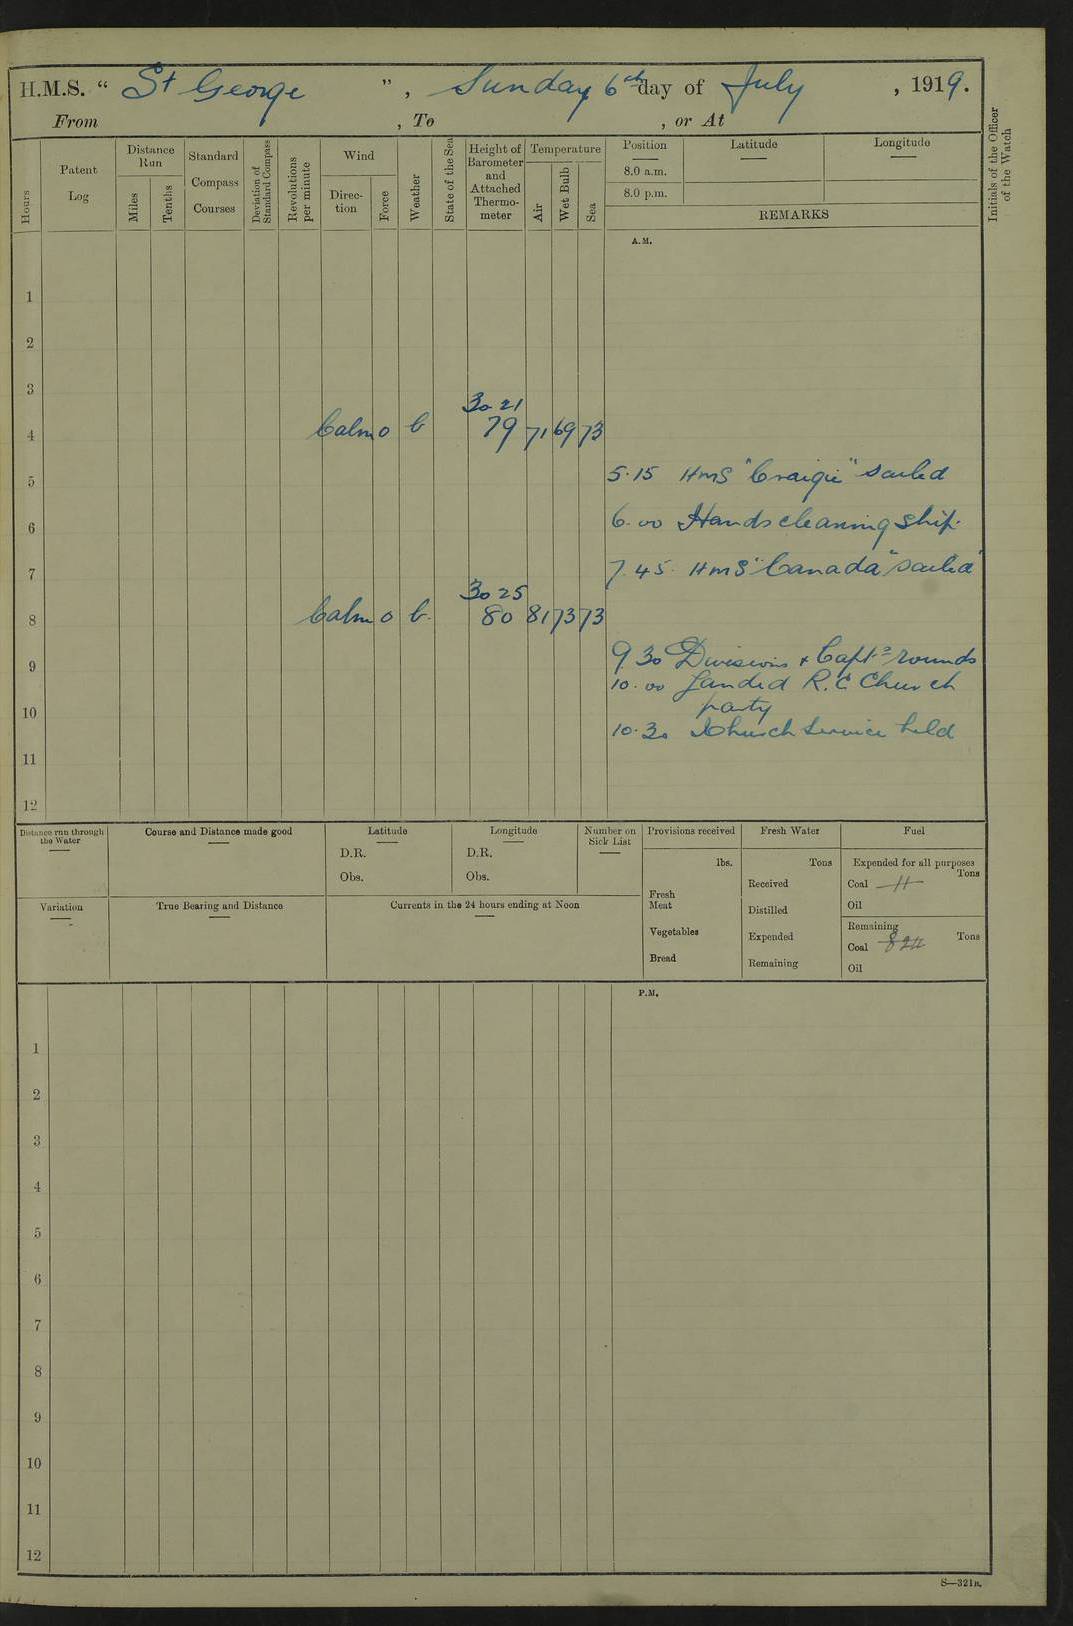 H.M.S. “ St George ” , Sunday 6th day of July , 1919.
From , To , or At
Hours
Patent Log
Distance Run
Miles
Tenths
Standard Compass Courses
Deviation of Standard Compass
Revolutions per minute
Wind
Direc-tion
Force
Weather
State of the Sea
Height of Barometer and Attached Thermo-meter
Temperature
Air
Wet Bulb
Sea
Position
8.0 a.m.
8.0 p.m.
Latitude
Longitude
REMARKS
Initials of the Officer of the Watch
A.M.
1
2
3
30.21
4 Calm 0 b 79 71 69 73
5.15 HMS "Craigie" sailed
5
6.00 Hands cleaning ship.
6
7.45 HMS "Canada" sailed
7
30 25
8 Calm 0 b. 80 81 73 73
9 30 Divisions + Capt:s rounds
9
10.00 Landed R.C Church
party
10
10.30 Church Service held
11
12
Distance run through the Water
Course and Distance made good
Latitude
D.R.
Obs.
Longitude
D.R.
Obs.
Number on Sick List
Provisions received
lbs.
Fresh Meat
Vegetables
Bread
Fresh Water
Tons
Received
Distilled
Expended
Remaining
Fuel
Expended for all purposes
Tons
Coal 11
Oil
Remaining
Tons
Coal
Oil
Variation
True Bearing and Distance
Currents in the 24 hours ending at Noon
P.M.
1
2
3
4
5
6
7
8
9
10
11
12
S—321B.